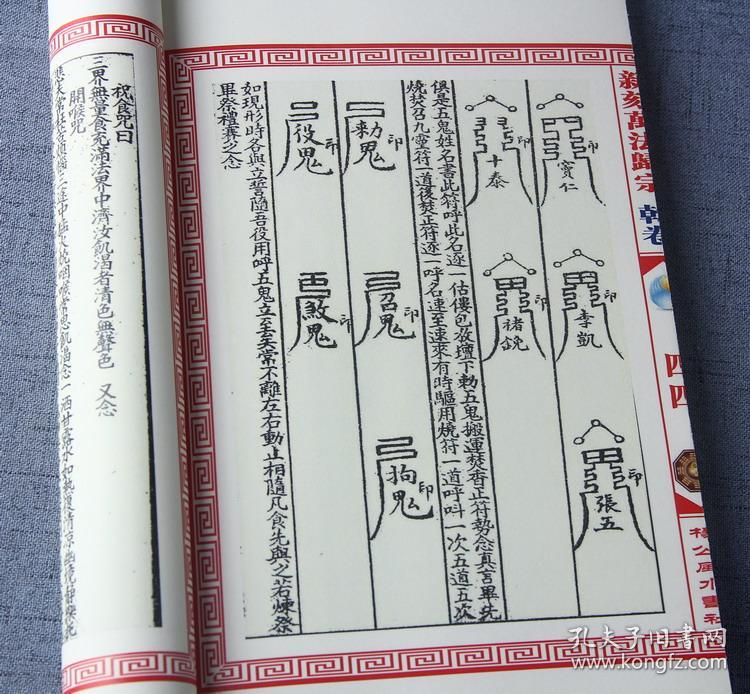 新刻萬法歸宗 乾卷 四四 楊公風水書社
寶仁 印
李凱 印
張五 印
十泰 印
褚說 印
俱是五鬼姓名書此符呼此名逐一估僂包放壇下勅五鬼搬運焚香正符勢念真言畢先
燒焚召九靈符一道後焚正符逐一呼名速至速來有時驅用燒符一道呼叫一次五道五次
勅鬼 印
召鬼 印
拘鬼 印
役鬼 印
煞鬼 印
如現形時各與立誓隨吾役用呼五鬼立至去天常不離左右動止相隨凡食先與之若煉祭
畢祭禮葬之念
祝食咒曰
三界無量食充滿法界中濟汝飢渴者清色無聲色 又念
開喉咒
三途中猛火燒咽喉常思飢渴念一洒甘露水如熱復清涼
孔夫子旧书网
www.kongfz.com